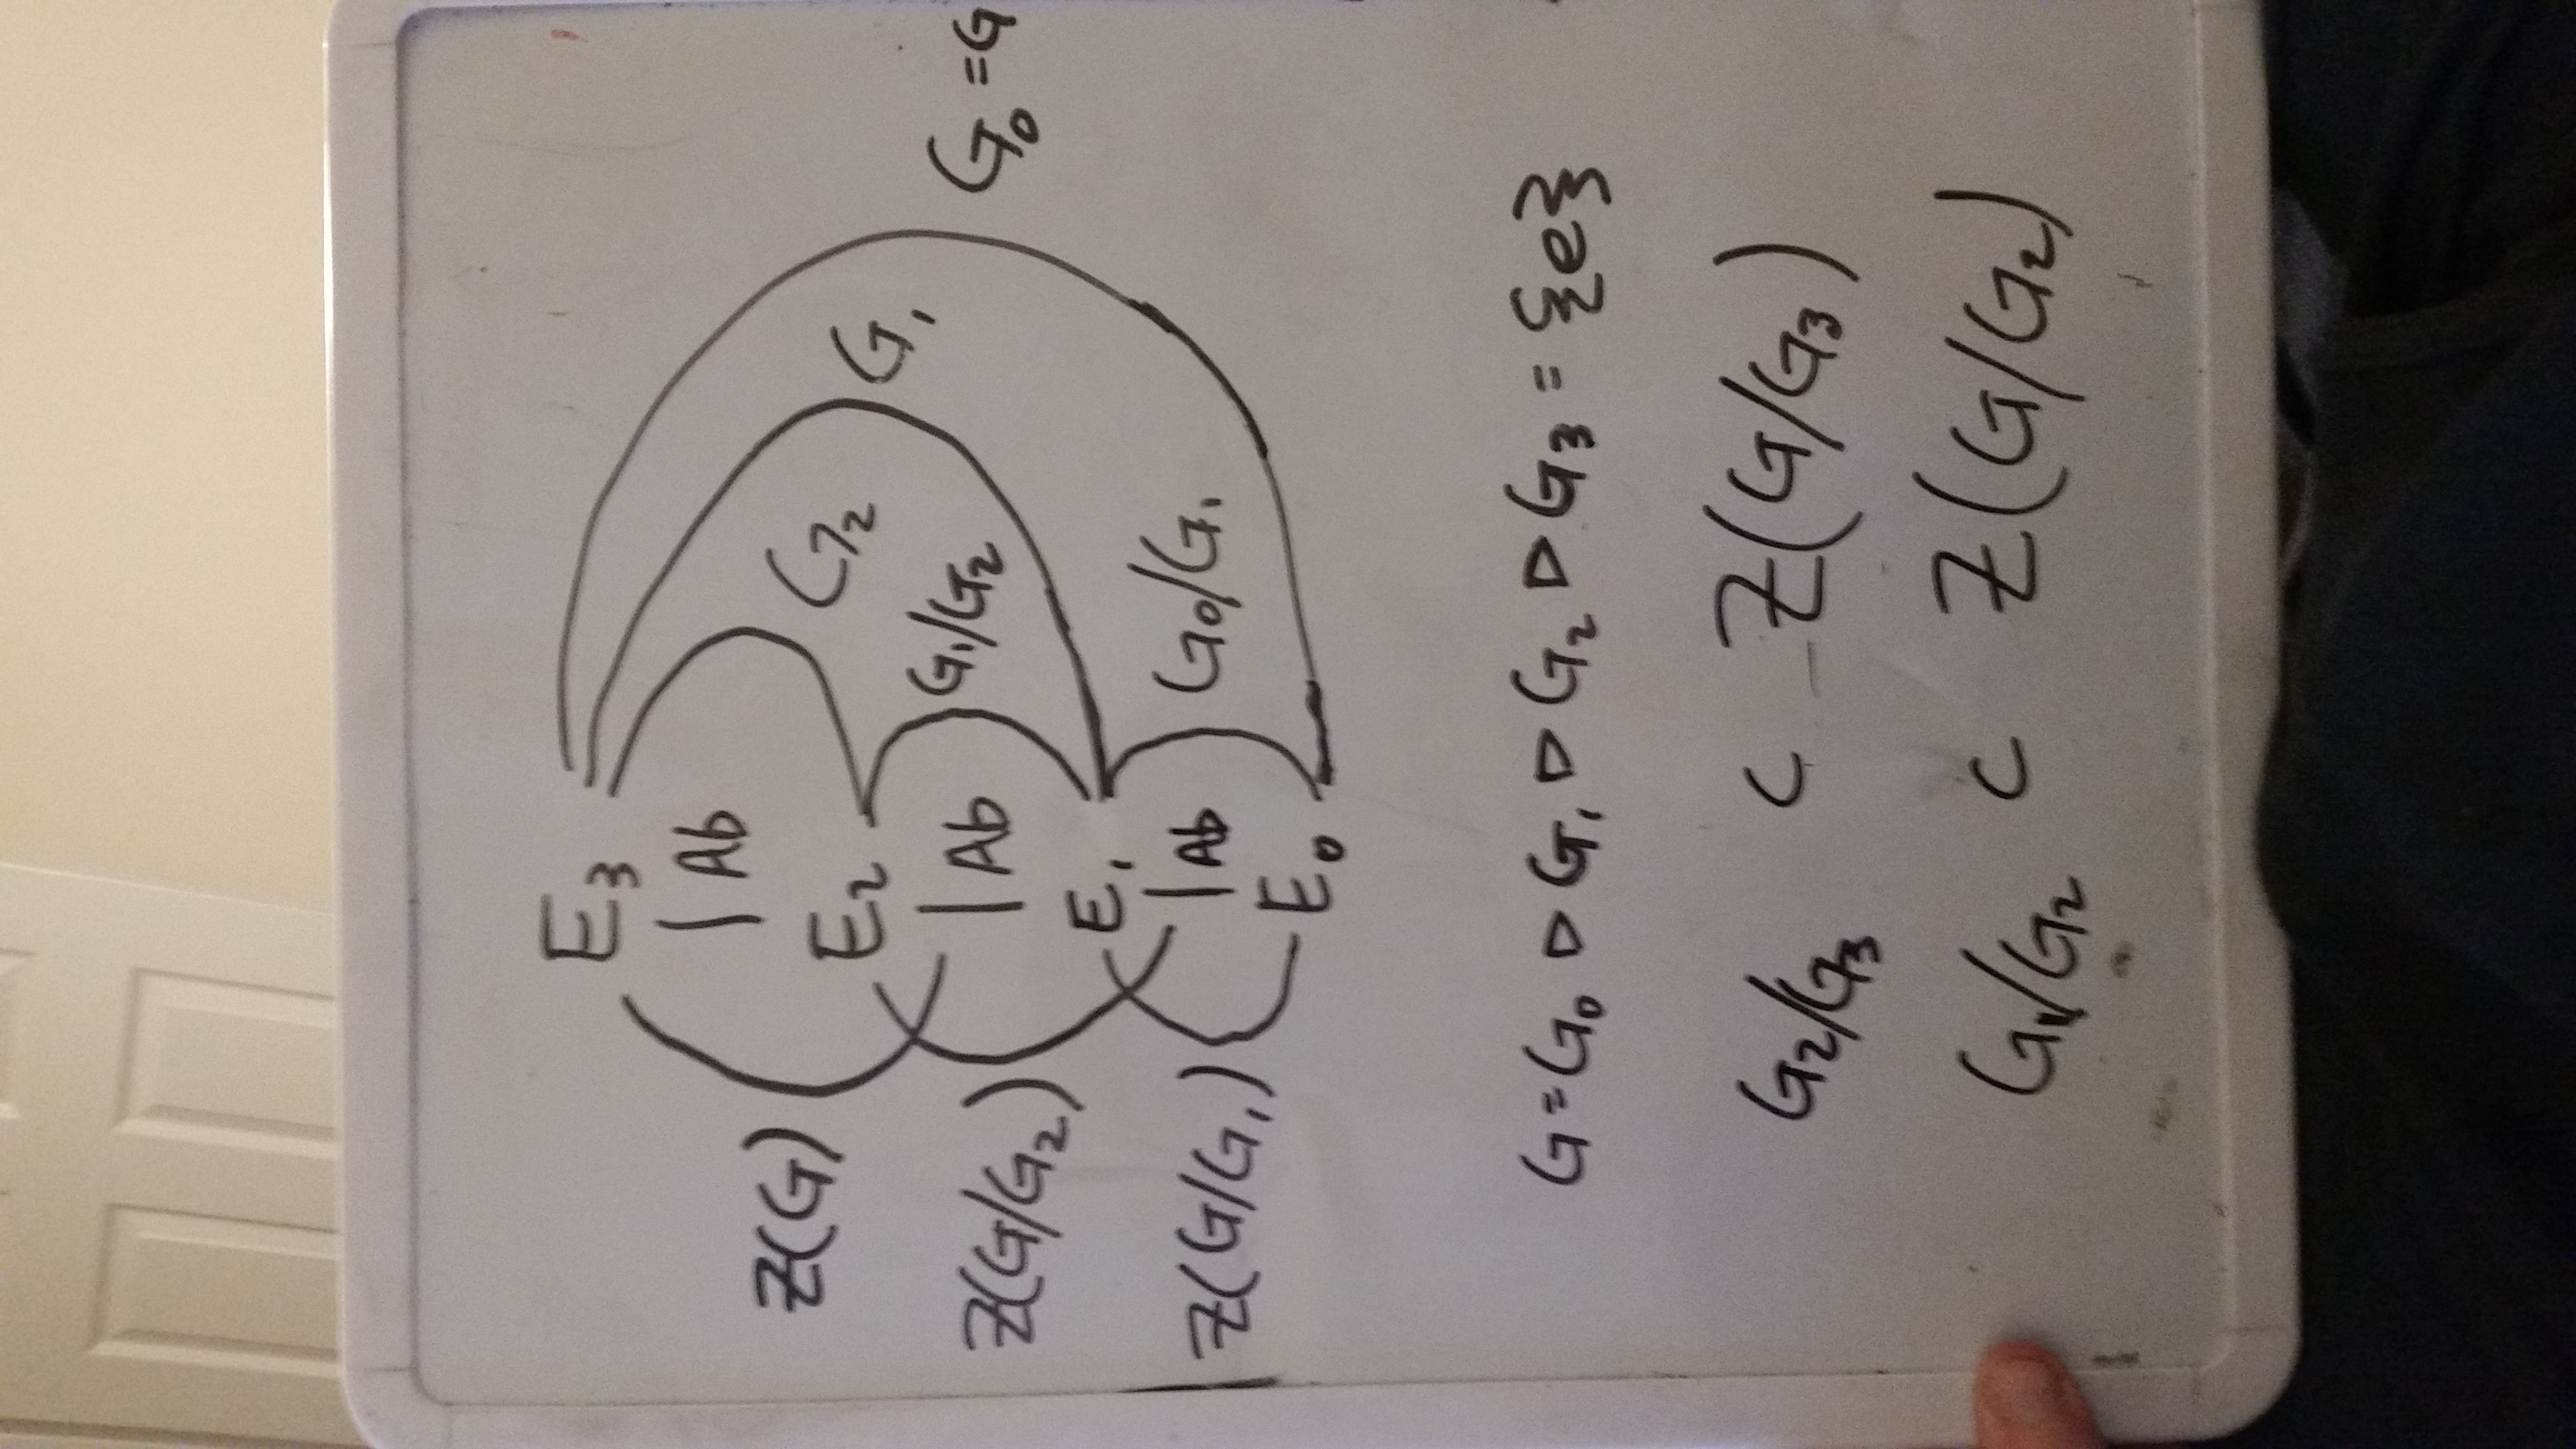 E₃
| Ab
Z(G)
E₂
G₂
G₁
| Ab
G₁/G₂
G₀ = G
Z(G/G₂)
E₁
| Ab
G₀/G₁
Z(G/G₁)
E₀
G = G₀ ▷ G₁ ▷ G₂ ▷ G₃ = {e}
G₂/G₃ ⊂ Z(G/G₃)
G₁/G₂ ⊂ Z(G/G₂)